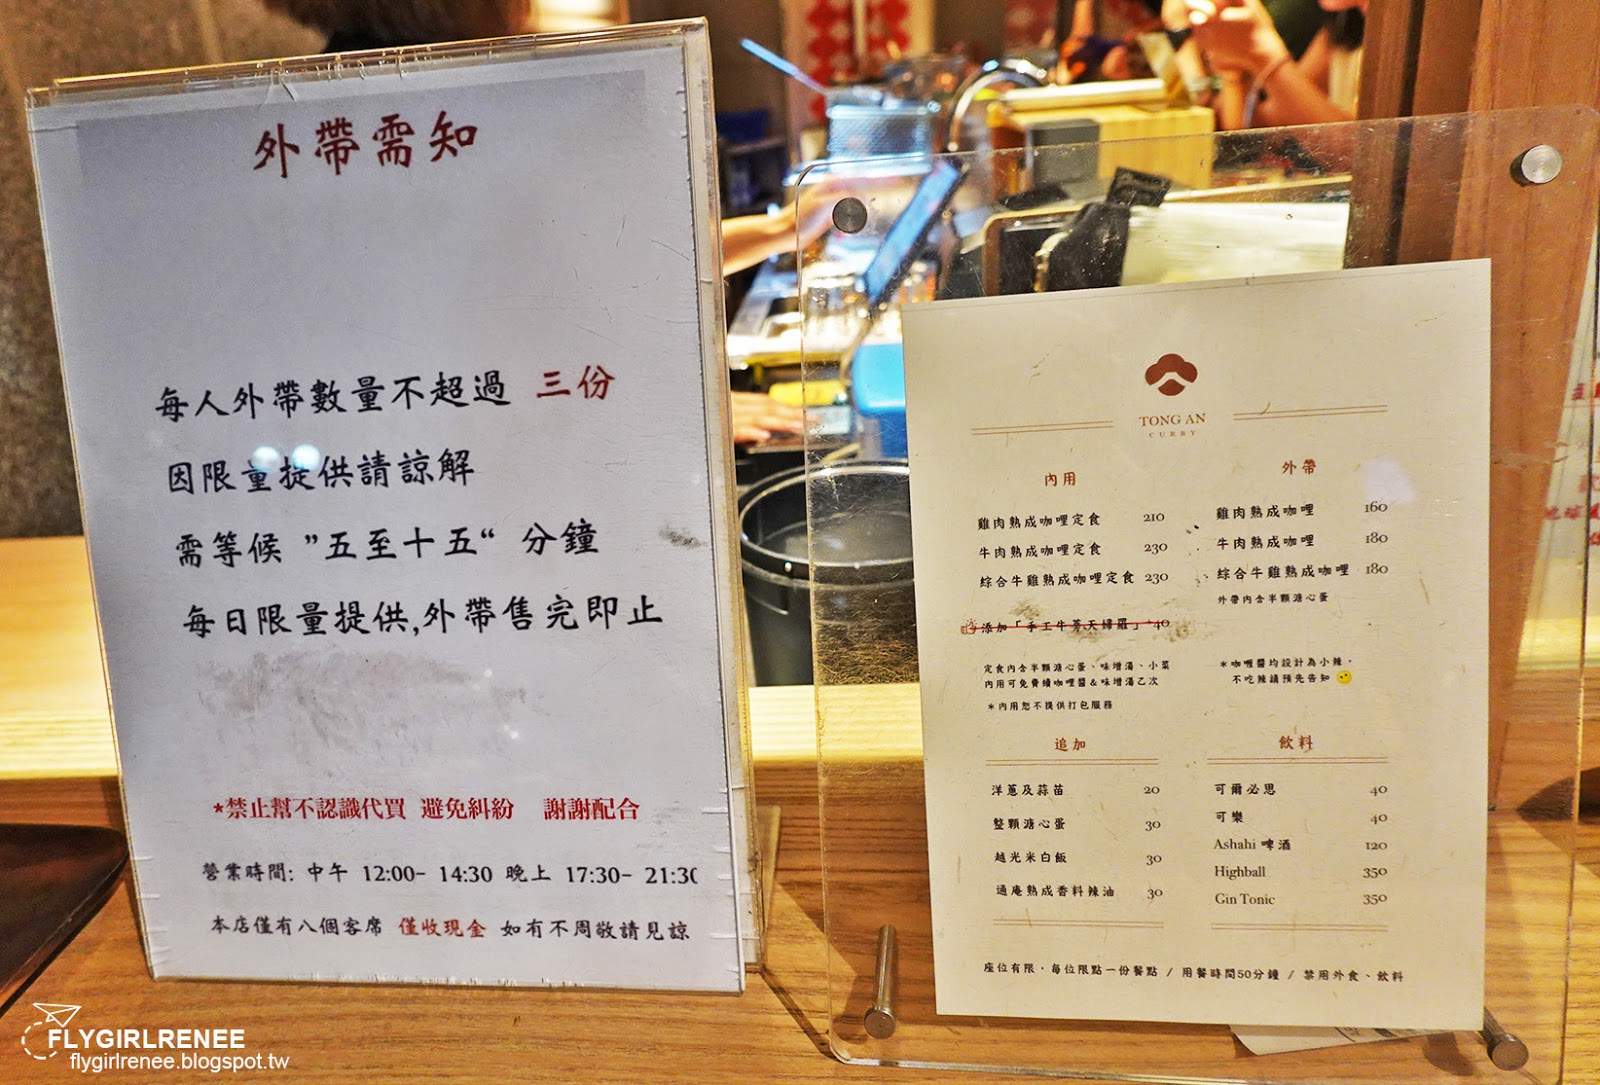 外帶需知
每人外帶數量不超過 三份
因限量提供請諒解
需等候 ”五至十五“ 分鐘
每日限量提供,外帶售完即止
*禁止幫不認識代買 避免糾紛 謝謝配合
營業時間: 中午 12:00- 14:30 晚上 17:30- 21:30
本店僅有八個客席 僅收現金 如有不周敬請見諒
TONG AN
CURRY
內用
雞肉熟成咖哩定食 210
牛肉熟成咖哩定食 230
綜合牛雞熟成咖哩定食 230
添加「手工牛蒡天婦羅」+40
定食內含半顆溏心蛋、味增湯、小菜
內用可免費續咖哩醬&味增湯乙次
*內用恕不提供打包服務
外帶
雞肉熟成咖哩 160
牛肉熟成咖哩 180
綜合牛雞熟成咖哩 180
外帶內含半顆溏心蛋
*咖喱醬均設計為小辣,
不吃辣請預先告知
追加
洋蔥及蒜苗 20
整顆溏心蛋 30
越光米白飯 30
通庵熟成香料辣油 30
飲料
可爾必思 40
可樂 40
Ashahi 啤酒 120
Highball 350
Gin Tonic 350
座位有限,每位限點一份餐點 / 用餐時間50分鐘 / 禁用外食、飲料
FLYGIRLRENEE
flygirlrenee.blogspot.tw